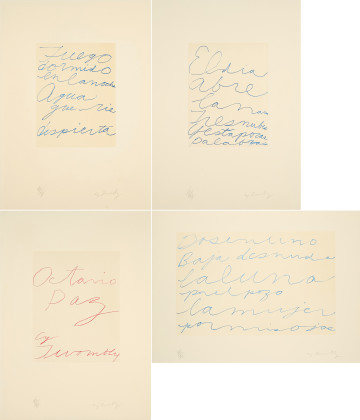 Fuego
dormido
en la noche
Agua
que rie
despierta
El dia
Abre
la mano
Tres nubes
y estas pocas
palabras
Octavio
Paz
Cy
Twombly
Dos en uno
Baja desnuda
la luna
por el pozo
la mujer
por mis ojos